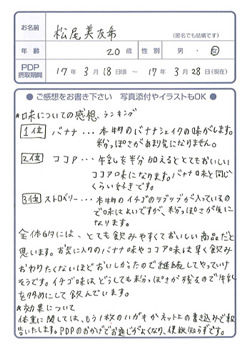 お名前
松尾美友希
(匿名でも結構です)
年齢
20歳
性別
男・女
PDP
摂取期間
17年3月18日 ~ 17年3月28日(現在)
●ご感想をお書き下さい 写真添付やイラストもOK●
*味についての感想 ランキング
1位 バナナ … 本物のバナナシェイクの味がします。
粉っぽさがあまり気になりません。
2位 ココア … 牛乳を半分加えるととてもおいしい
ココア味になります。バナナ味と同じ
くらい好きです。
3位 ストロベリー … 本物のイチゴのツブツブが入っているの
で味は良いですが、粉っぽさが気に
なります。
全体的には、とても飲みやすくておいしい商品だと
思います。お気に入りのバナナ味やココア味は早く飲み
おわりたくないほどおいしかったので継続してやっていけ
そうです。イチゴ味はどうしても粉っぽさが残るので牛乳
を多めにして飲んでいます。
*効果について
体重に関しては、もう1枚のハガキかネット上の書き込みで報
告いたします。PDPのおかげでお通じがよくなり、便秘知らずです。